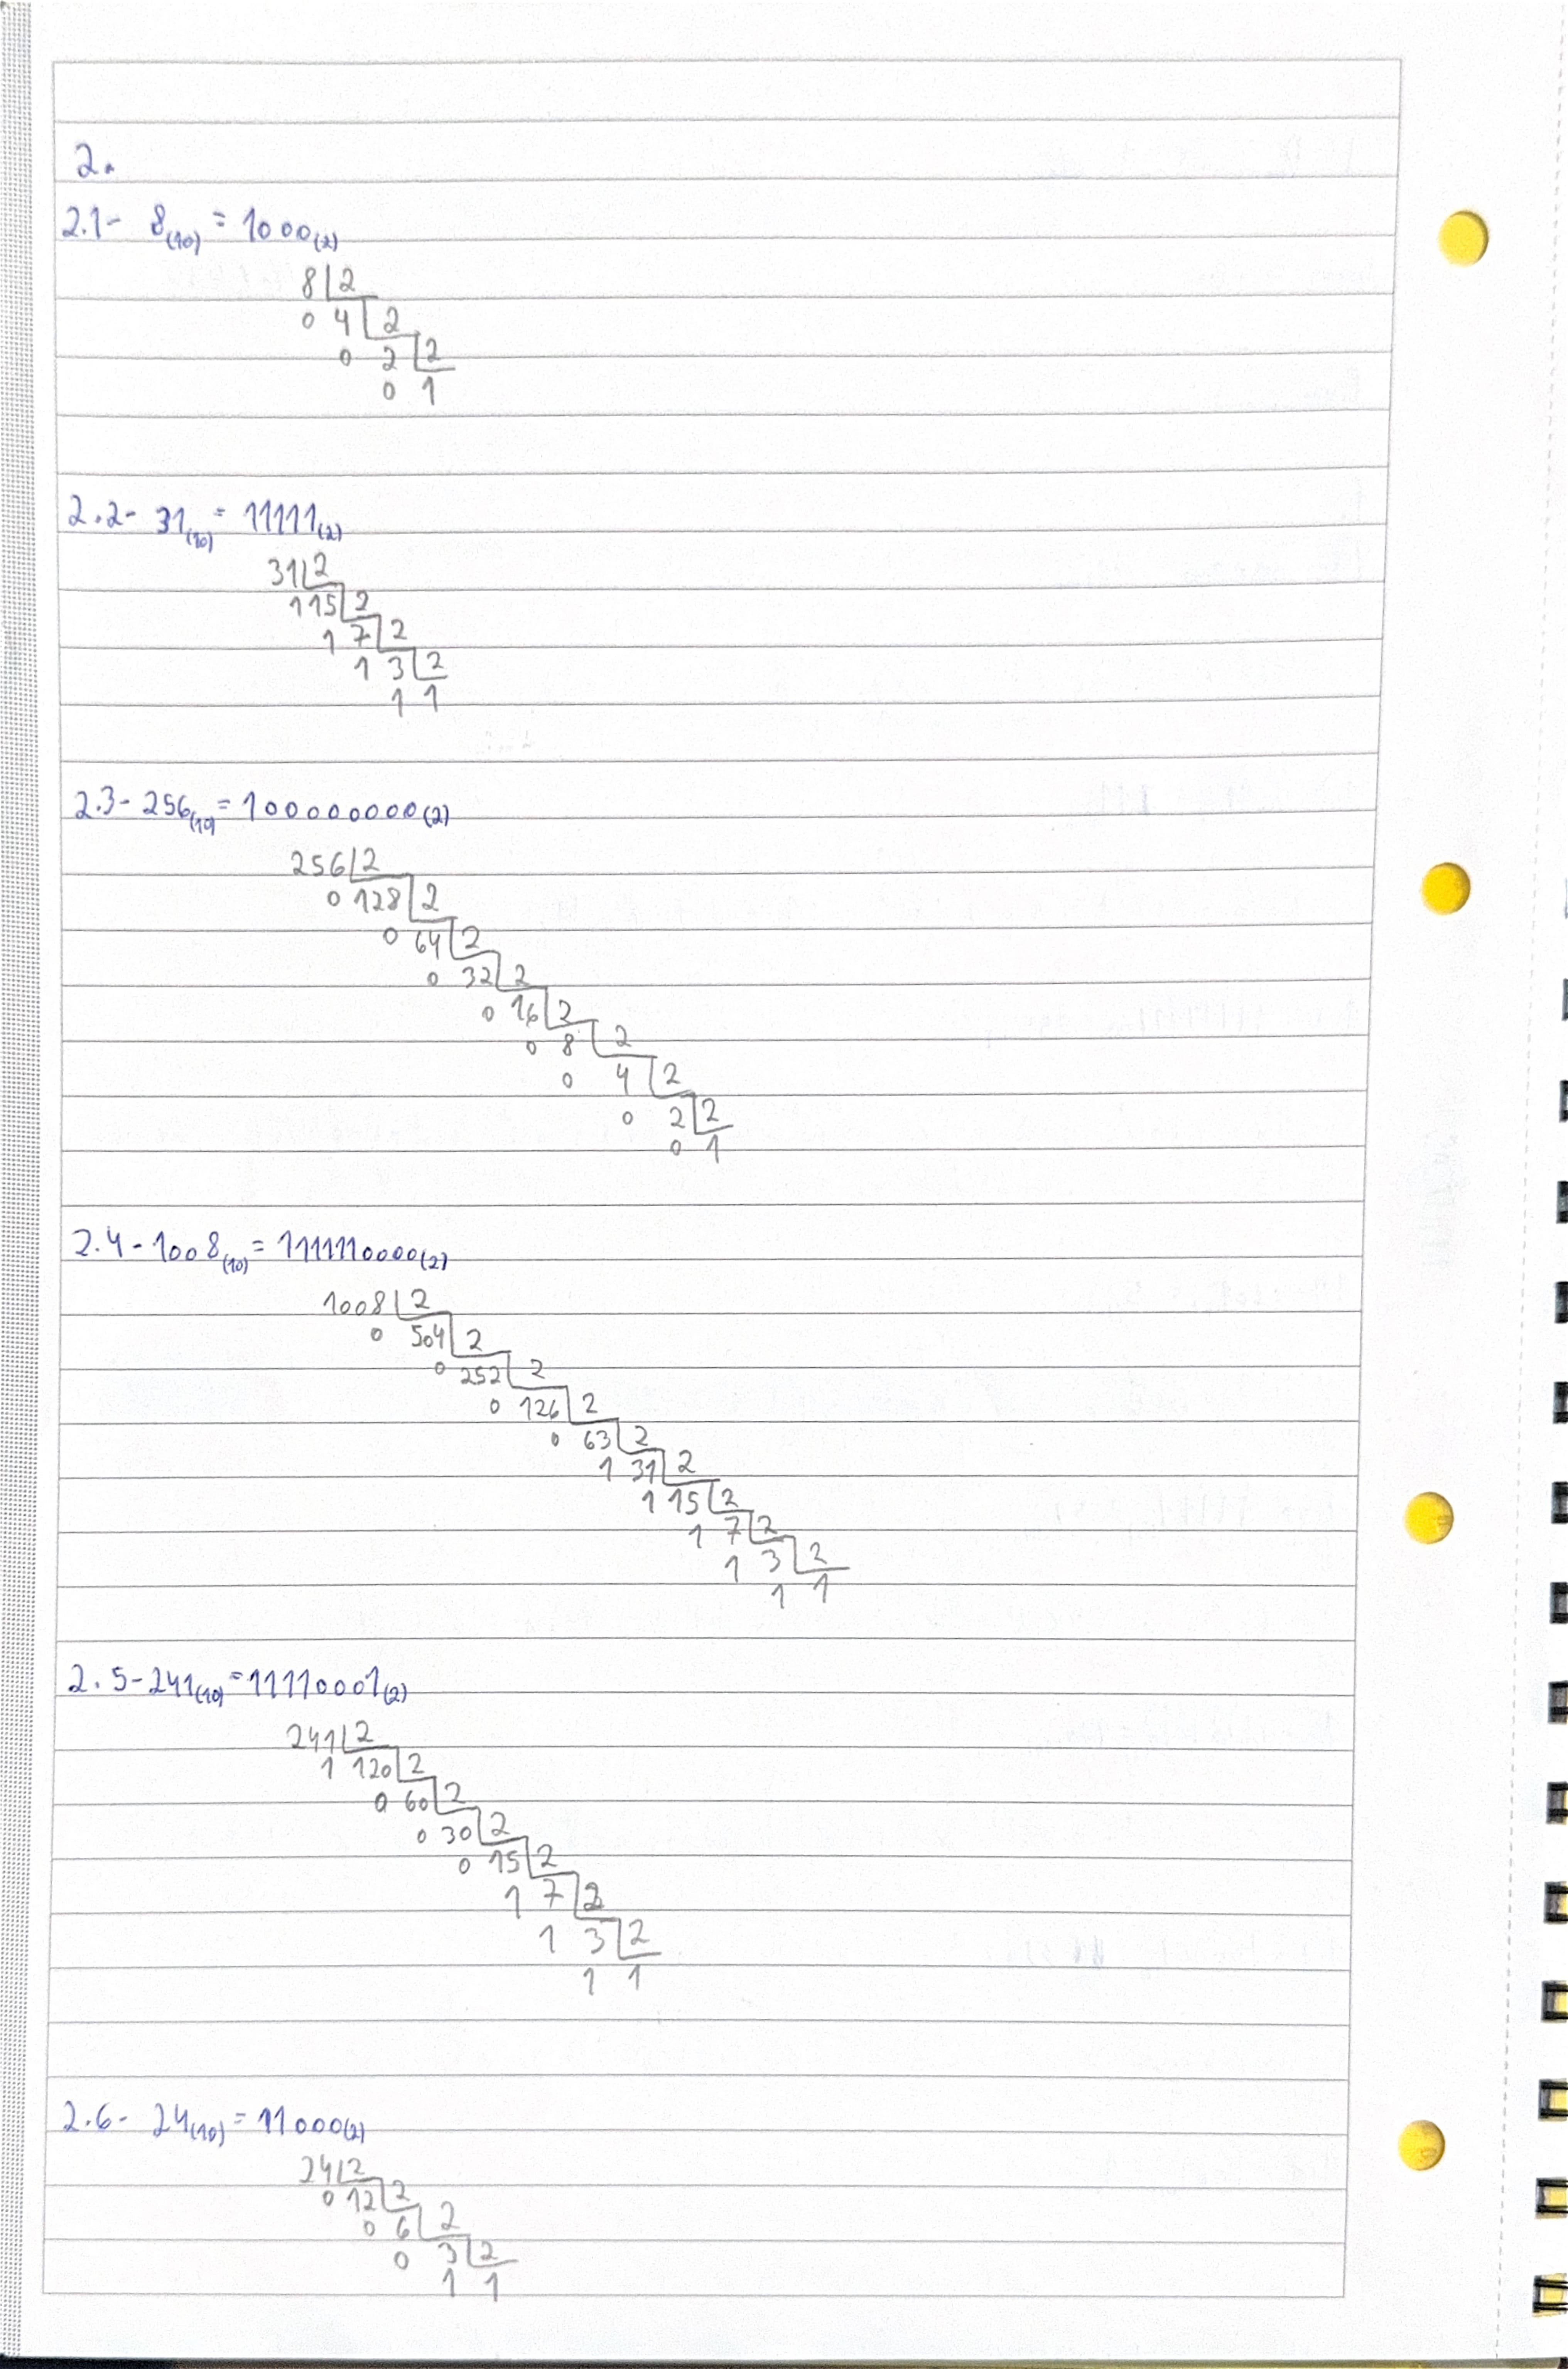 2.
2.1- 8(10) = 1000(2)
8|2
0 4|2
0 2|2
0 1
2.2- 31(10) = 11111(2)
31|2
1 15|2
1 7|2
1 3|2
1 1
2.3- 256(10) = 100000000(2)
256|2
0 128|2
0 64|2
0 32|2
0 16|2
0 8|2
0 4|2
0 2|2
0 1
2.4- 1008(10) = 1111110000(2)
1008|2
0 504|2
0 252|2
0 126|2
0 63|2
1 31|2
1 15|2
1 7|2
1 3|2
1 1
2.5- 241(10) = 11110001(2)
241|2
1 120|2
0 60|2
0 30|2
0 15|2
1 7|2
1 3|2
1 1
2.6- 24(10) = 11000(2)
24|2
0 12|2
0 6|2
0 3|2
1 1